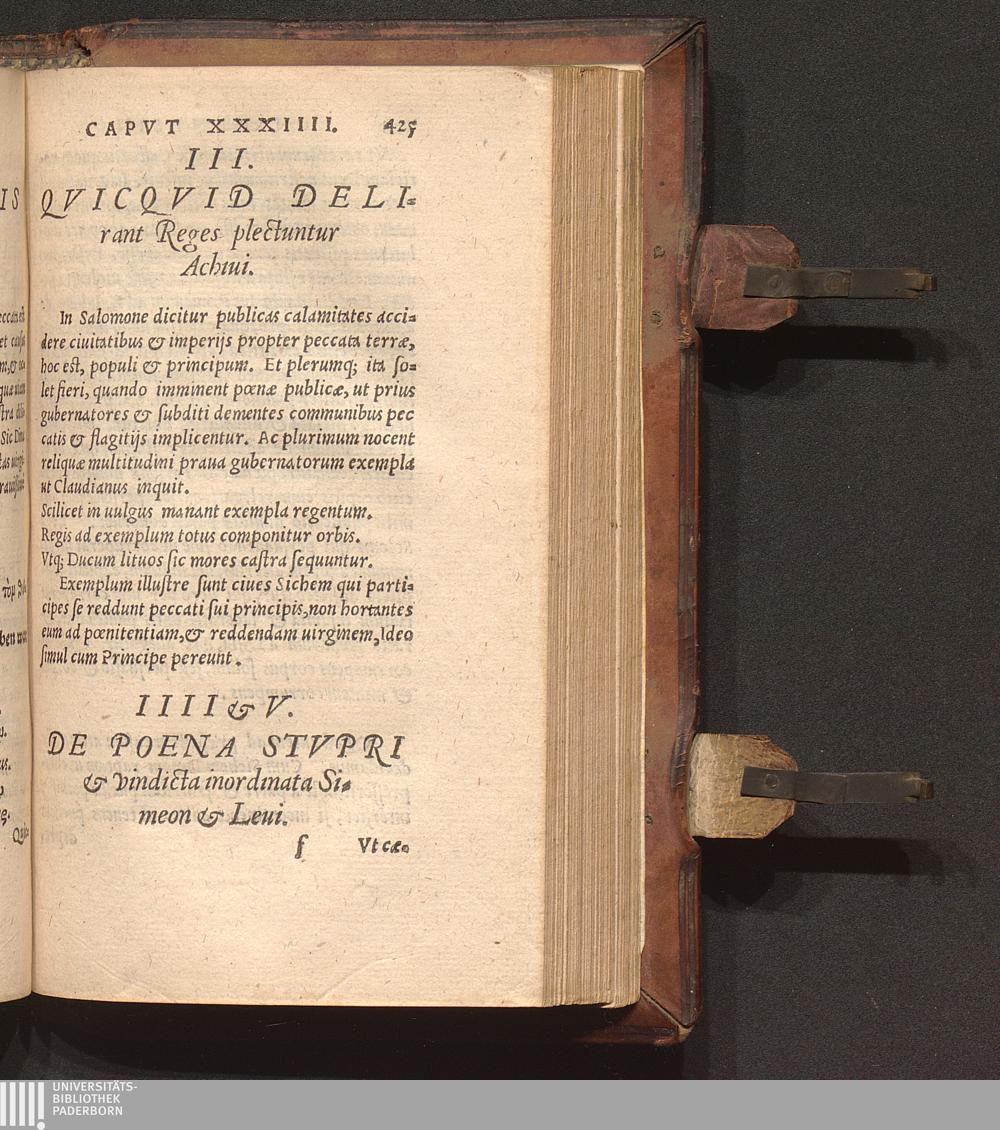 CAPVT XXXIIII. 425
III.
QVICQVID DELI=
rant Reges plectuntur
Achiui.
In Salomone dicitur publicas calamitates acci=
dere ciuitatibus & imperijs propter peccata terræ,
hoc est, populi & principum. Et plerumq; ita so=
let fieri, quando imminent pœnæ publicæ, ut prius
gubernatores & subditi dementes communibus pec
catis & flagitijs implicentur. Ac plurimum nocent
reliquæ multitudini praua gubernatorum exempla
ut Claudianus inquit.
Scilicet in uulgus manant exempla regentum.
Regis ad exemplum totus componitur orbis.
Vtq; Ducum lituos sic mores castra sequuntur.
Exemplum illustre sunt ciues Sichem qui parti=
cipes se reddunt peccati sui principis, non hortantes
eum ad pœnitentiam, & reddendam uirginem, Ideo
simul cum Principe pereunt.
IIII & V.
DE POENA STVPRI
& vindicta inordinata Si=
meon & Leui.
f Vt cæ=
UNIVERSITÄTS-
BIBLIOTHEK
PADERBORN